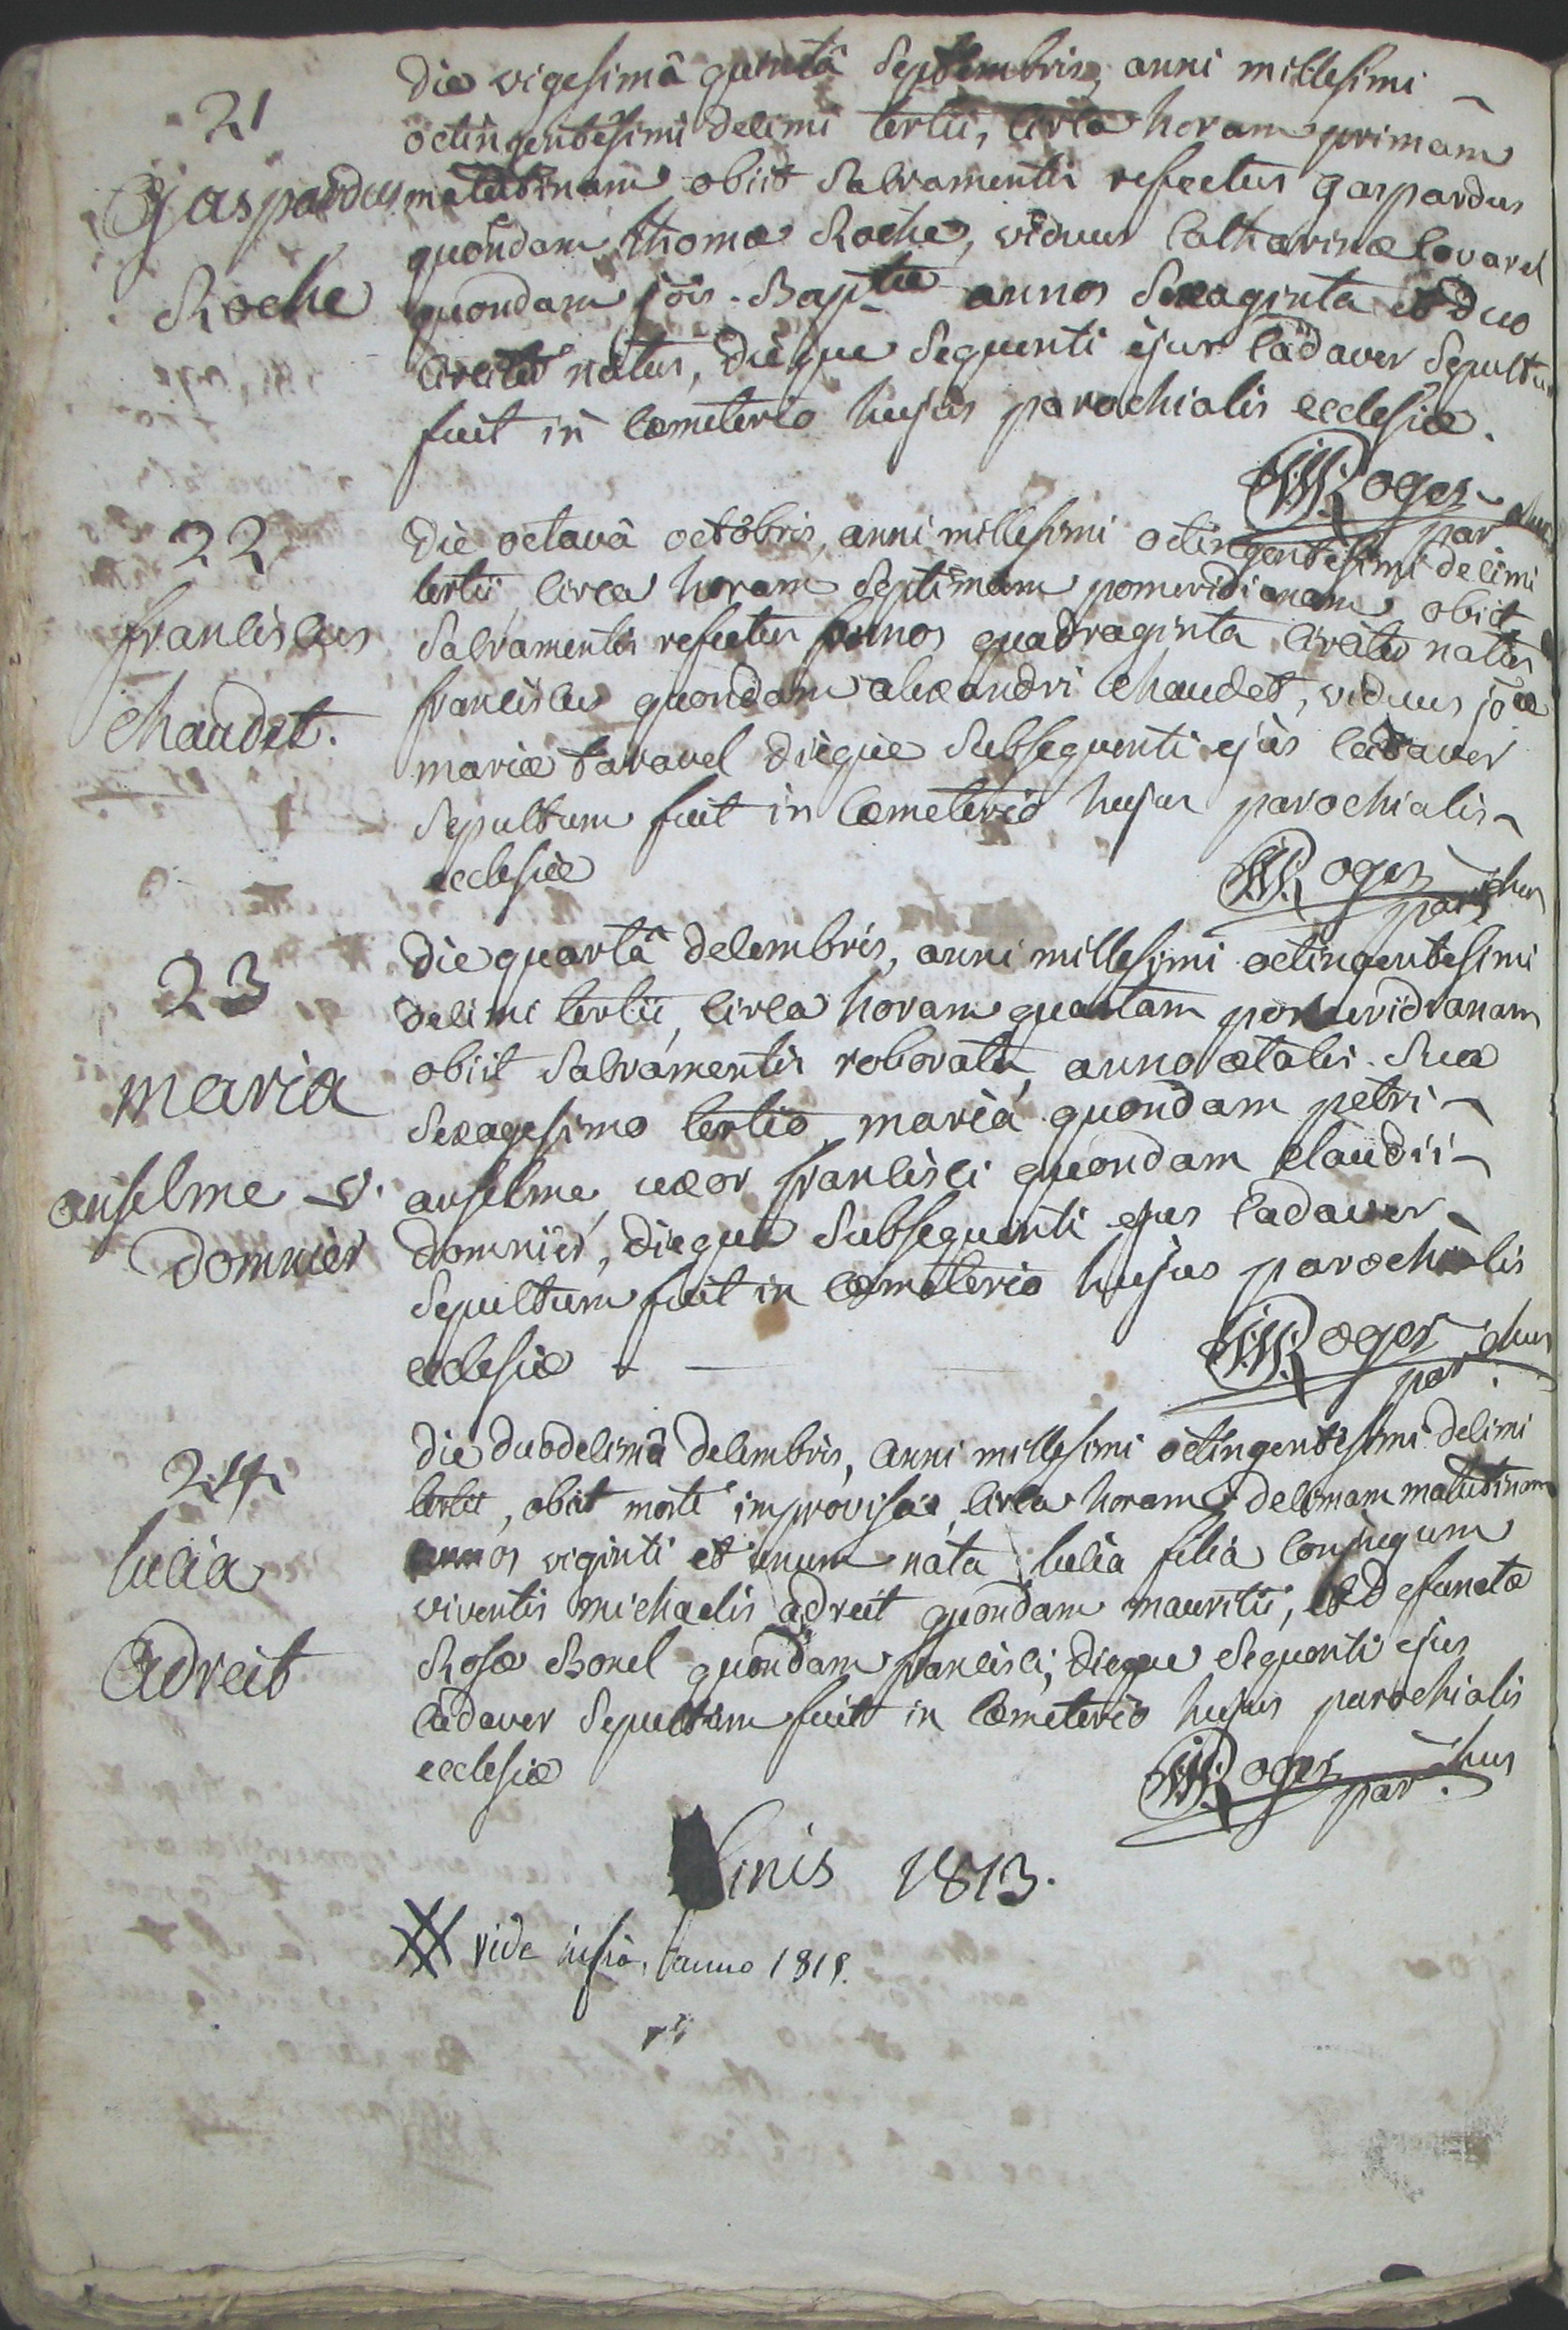 21
Gaspardus
Roche
Die vigesimâ quintâ Septembris, anni millesimi
octingentesimi decimi tertii, circa horam primam
matutinam obiit Sacramentis refectus gaspardus
quondam thomæ Roche, viduus Catharinæ
quondam jois-Baptæ annos Sexaginta et duo
circiter natus, dieque Sequenti ejus Cadaver Sepultum
fuit in Cœmeterio hujus parochialis ecclesiæ.
Roger parchus
22
franciscus
Chaudet.
Die octavâ octobris, anni millesimi octingentesimi decimi
tertii circa horam Septimam pomeridianam obiit
Sacramentis refectus annos quadraginta circiter natus
franciscus quondam alexandri Chaudet, viduus joæ
mariæ tavavel dieque Subsequenti ejus Cadaver
Sepultum fuit in Cœmeterio hujus parochialis
ecclesiæ
Roger parchus
23
maria
anselme v.
Domnier
Die quartâ decembris, anni millesimi octingentesimi
decimi tertii, circa horam quartam pomeridianam
obiit Sacramentis roborata, anno ætatis Suæ
Sexagesimo tertio, maria quondam petri
anselme uxor francisci quondam claudii
domnier, dieque Subsequenti ejus Cadaver
Sepultum fuit in Cœmeterio hujus parochialis
ecclesiæ
Roger parchus
24
lucia
Adreit
Die duodecimâ decembris, anni millesimi octingentesimi decimi
tertii, obiit morte improvisa, circa horam decimam matutinam
annos viginti et unum nata lucia filia conjugum
viventis michaelis adreit quondam mauritii, et defunctæ
Rosæ Borel quondam francisci, dieque Sequenti ejus
Cadaver Sepultum fuit in Cœmeterio hujus parochialis
ecclesiæ
Roger parchus
finis 1813.
vide infra, anno 1818.